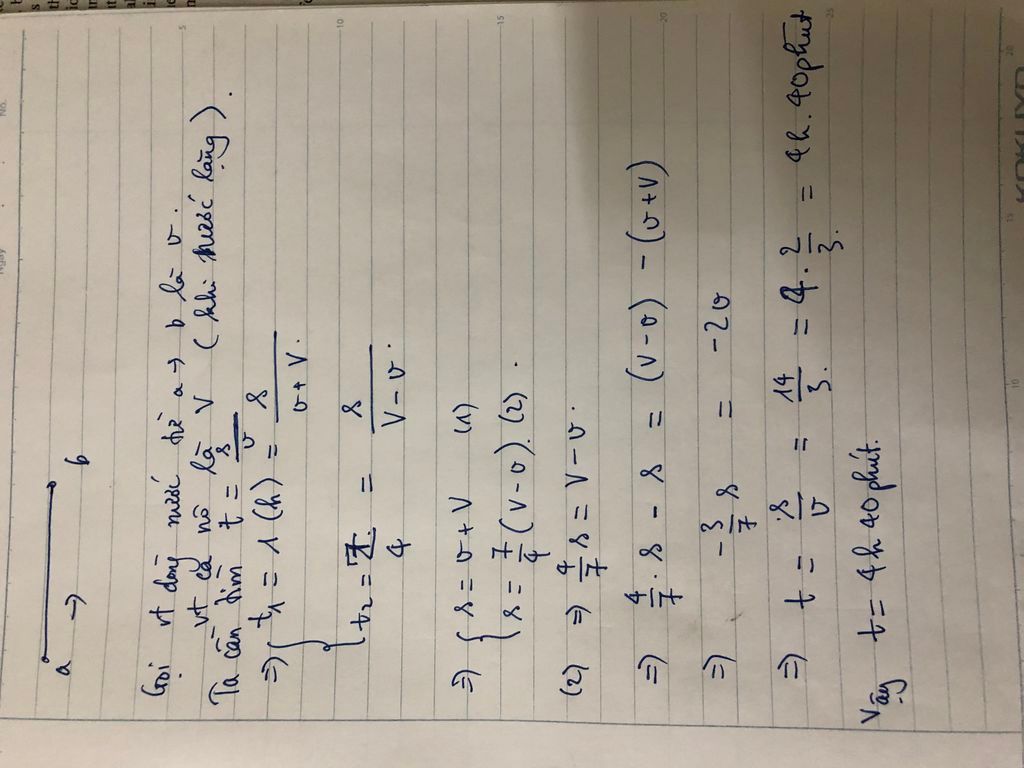 a → b
Gọi vt dòng nước từ a → b là v.
vt ca nô là V (khi nước lặng).
Ta cần tìm t = s/v
=> { t1 = 1 (h) = s/(v + V).
t2 = 7/4 = s/(V - v).
=> { s = v + V (1)
s = 7/4 (V - v). (2).
(2) => 4/7 s = V - v.
=> 4/7 . s - s = (V - v) - (v + V)
=> - 3/7 s = -2v
=> t = s/v = 14/3. = 4. 2/3. = 4h. 40 phút
Vậy t = 4h 40 phút.